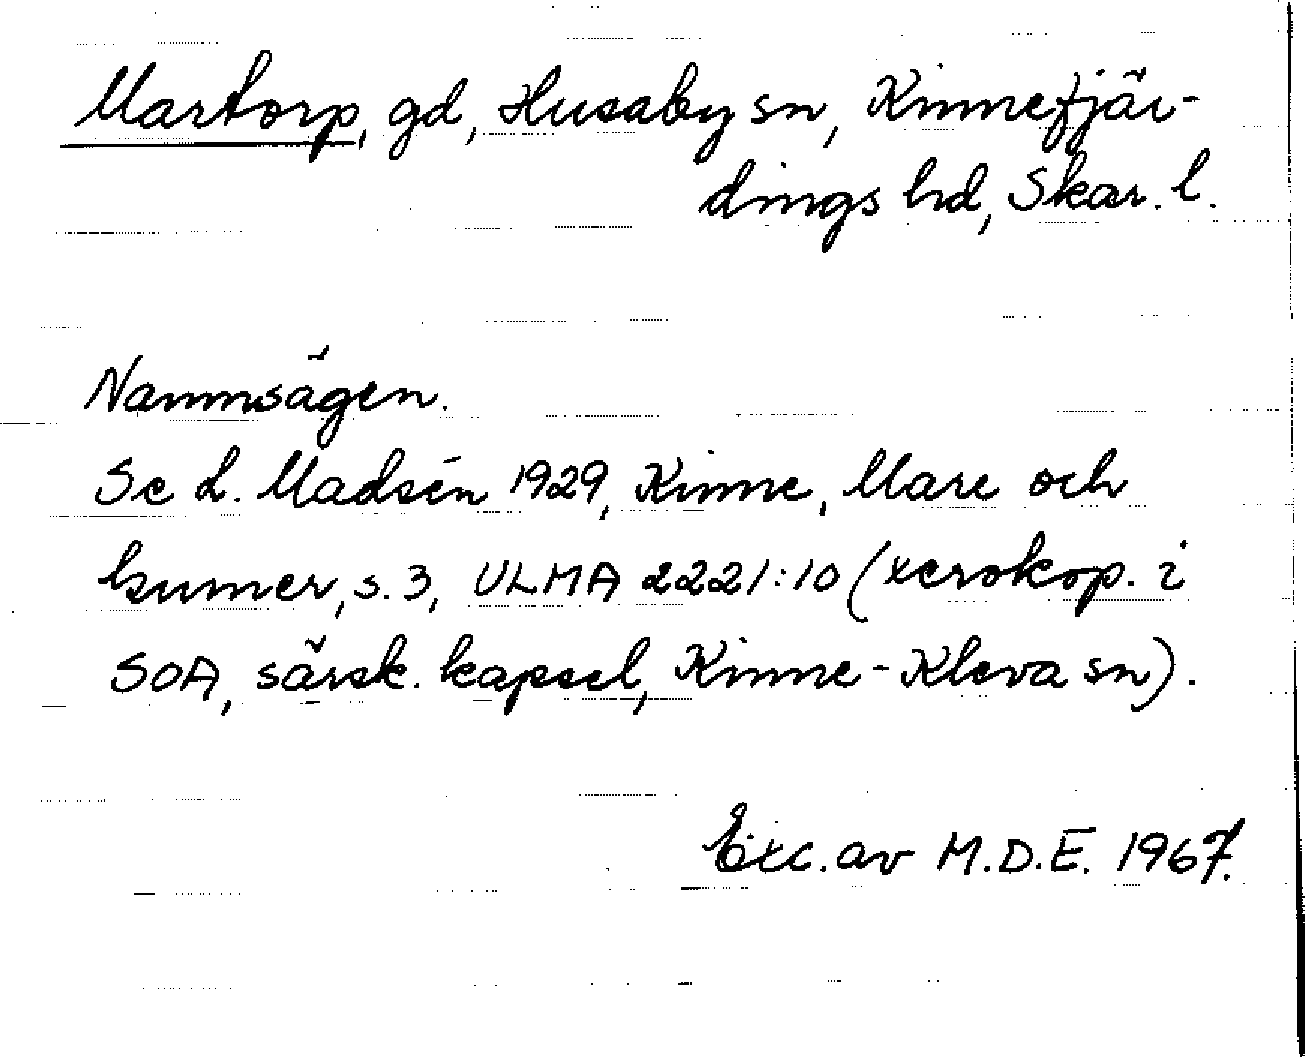 Martorp, gd, Husaby sn, Kinnefjär-
dings hd, Skar. l.
Namnsägen.
Se L. Madsén 1929, Kinne, Mare och
humer, s. 3, ULMA 2221:10 (xerokop. i
SOA, särsk. kapsel, Kinne-Kleva sn).
Exc. av M.D.E. 1967.